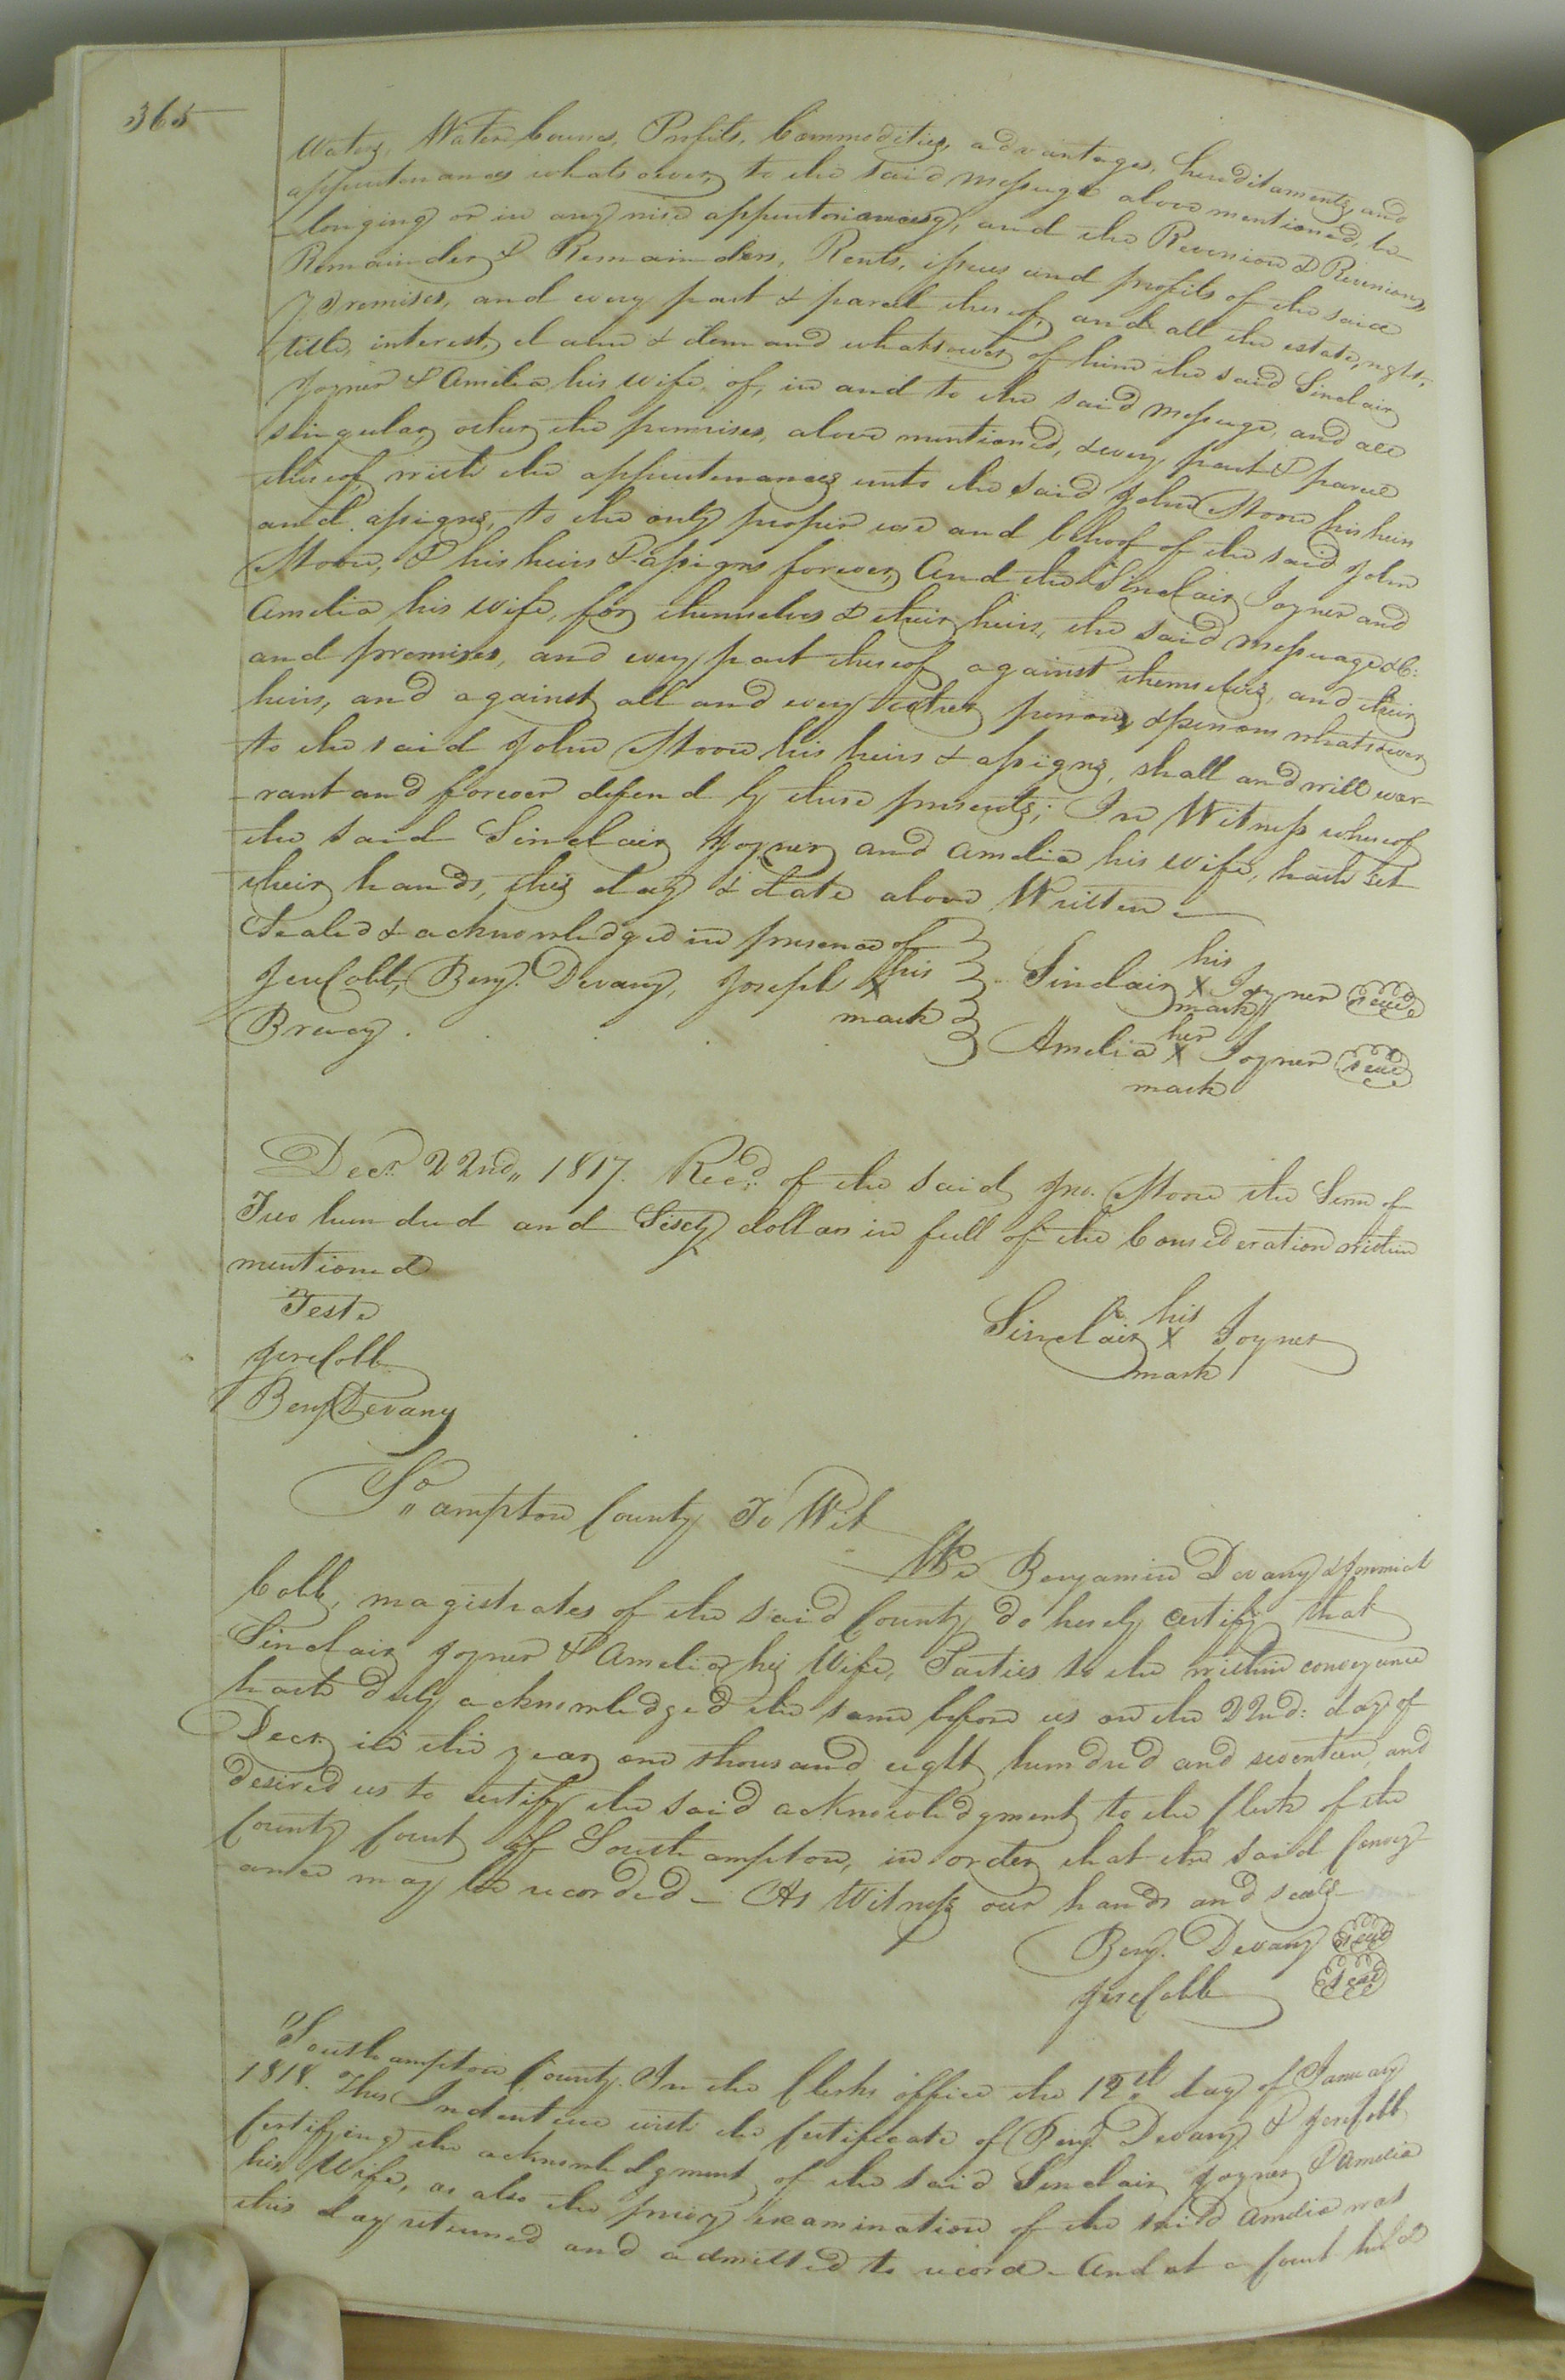 365
Waters, Water Courses, Profits, Commodities, advantages, hereditaments, and
appurtenances whatsoever, to the said messuage above mentioned, be-
-longing or in any wise appertaining, and the Reversion & Reversions,
Remainder & Remainders, Rents, issues and profits of the said
Premises, and every part & parcel thereof, and all the estate, right,
title, interest, claim & demand whatsoever of him the said Sinclair
Joyner & Amelia his wife of, in and to the said messuage, and all
singular, other the premises, above mentioned, & every part & parcel
thereof, with the appurtenances unto the said John Moore his heirs
and assigns, to the only proper use and behoof of the said John
Moore, & his heirs & assigns forever, And the Sinclair Joyner and
Amelia his wife, for themselves & their heirs, the said messuage &C:
and premises, and every part thereof against themselves, and their
heirs, and against all and every other person, & persons whatsoever
to the said John Moore his heirs & assigns, shall and will war-
-rant and forever defend by these presents; In Witness whereof
the said Sinclair Joyner and Amelia his wife, hath set
their hands, this day & date above Written
Sealed & acknowledged in presence of
Jere Cobb, Benj. Devany, Joseph his X mark
Brevey.
Sinclair his X mark Joyner seal
Amelia her X mark Joyner seal
Decr. 22nd,, 1817. Recd. of the said Jno. Moore the Sum of
Two hundred and Sixty dollars in full of the Consideration within
mentioned
Teste
Jere Cobb
Benj Devany
Sinclair his X mark Joyner
So,, ampton County To Wit
We Benjamin Devany & Jeremiah
Cobb, magistrates of the said County do hereby certify that
Sinclair Joyner & Amelia his Wife, Parties to the within conveyance
hath duly acknowledged the same before us on the 22nd: day of
Decr. in the year one thousand eight hundred and seventeen, and
desired us to certify the said acknowledgment to the Clerk of the
County Court of Southampton, in order that the said Convey-
ance may be recorded - As Witness our hands and seals
Benj. Devany seal
Jere Cobb seal
Southampton County. In the Clerks office the 12th day of January
1818. This Indenture with the Certificate of Benj. Devany & Jere Cobb
Certifying the acknowledgment of the said Sinclair Joyner & Amelia
his Wife, as also the privy examination of the said Amelia was
this day returned and admitted to record - And at a Court held